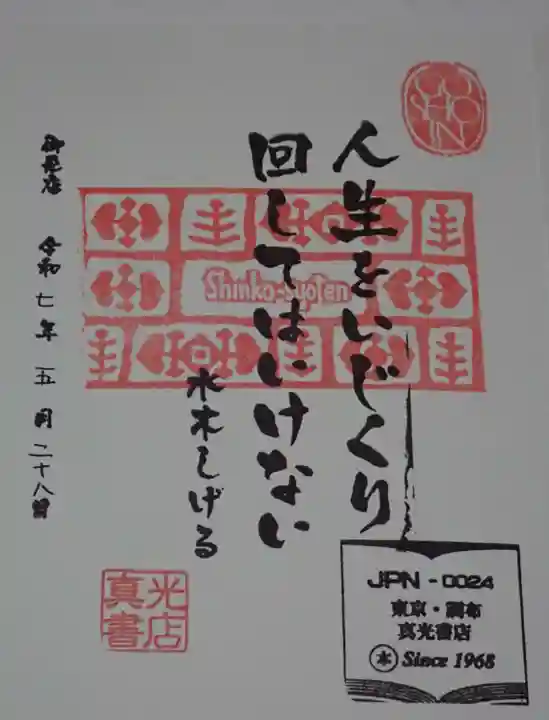 GO
SHO
IN
人生をいじくり
回してはいけない
水木しげる
Shinko-syoten
御来店 令和七年五月二十八日
真光
書店
JPN - 0024
東京・調布
真光書店
本 Since 1968